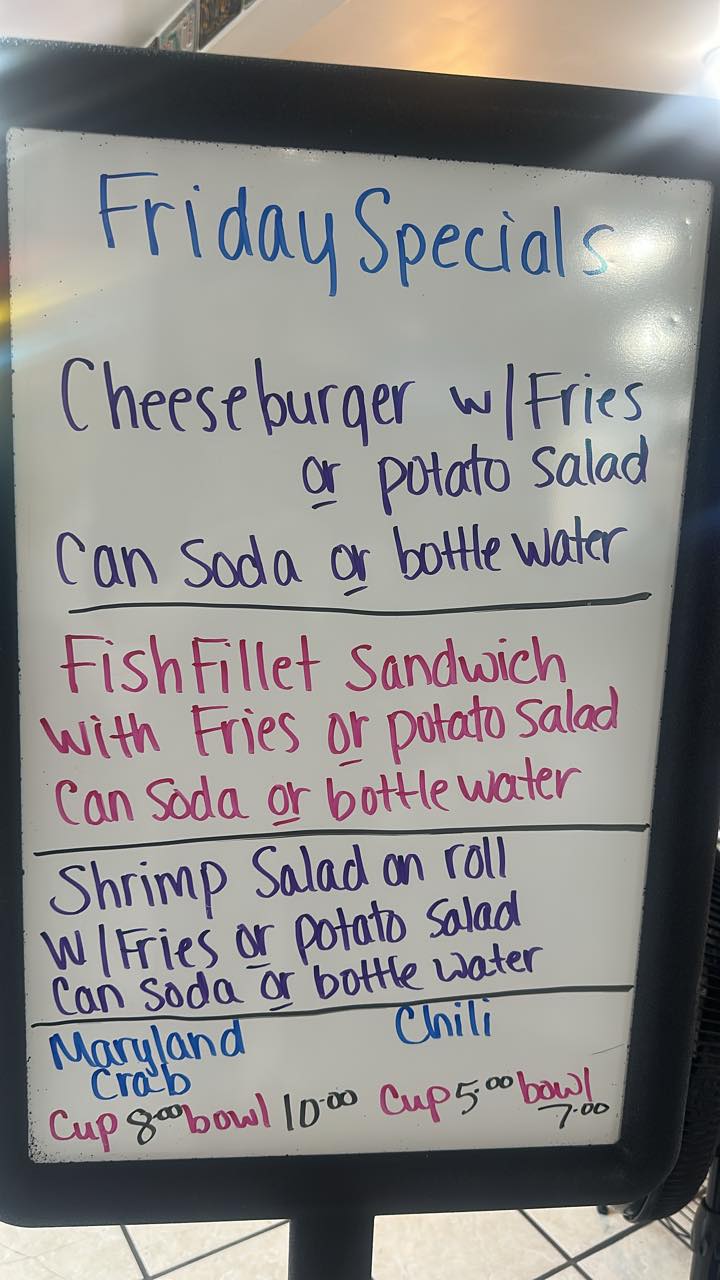 Friday Specials
Cheeseburger w/Fries
or potato salad
Can Soda or bottle water
Fish Fillet Sandwich
with Fries or potato salad
Can Soda or bottle water
Shrimp Salad on roll
W/Fries or potato salad
Can soda or bottle water
Maryland Crab
Cup 8.00 bowl 10.00
Chili
Cup 5.00 bowl 7.00